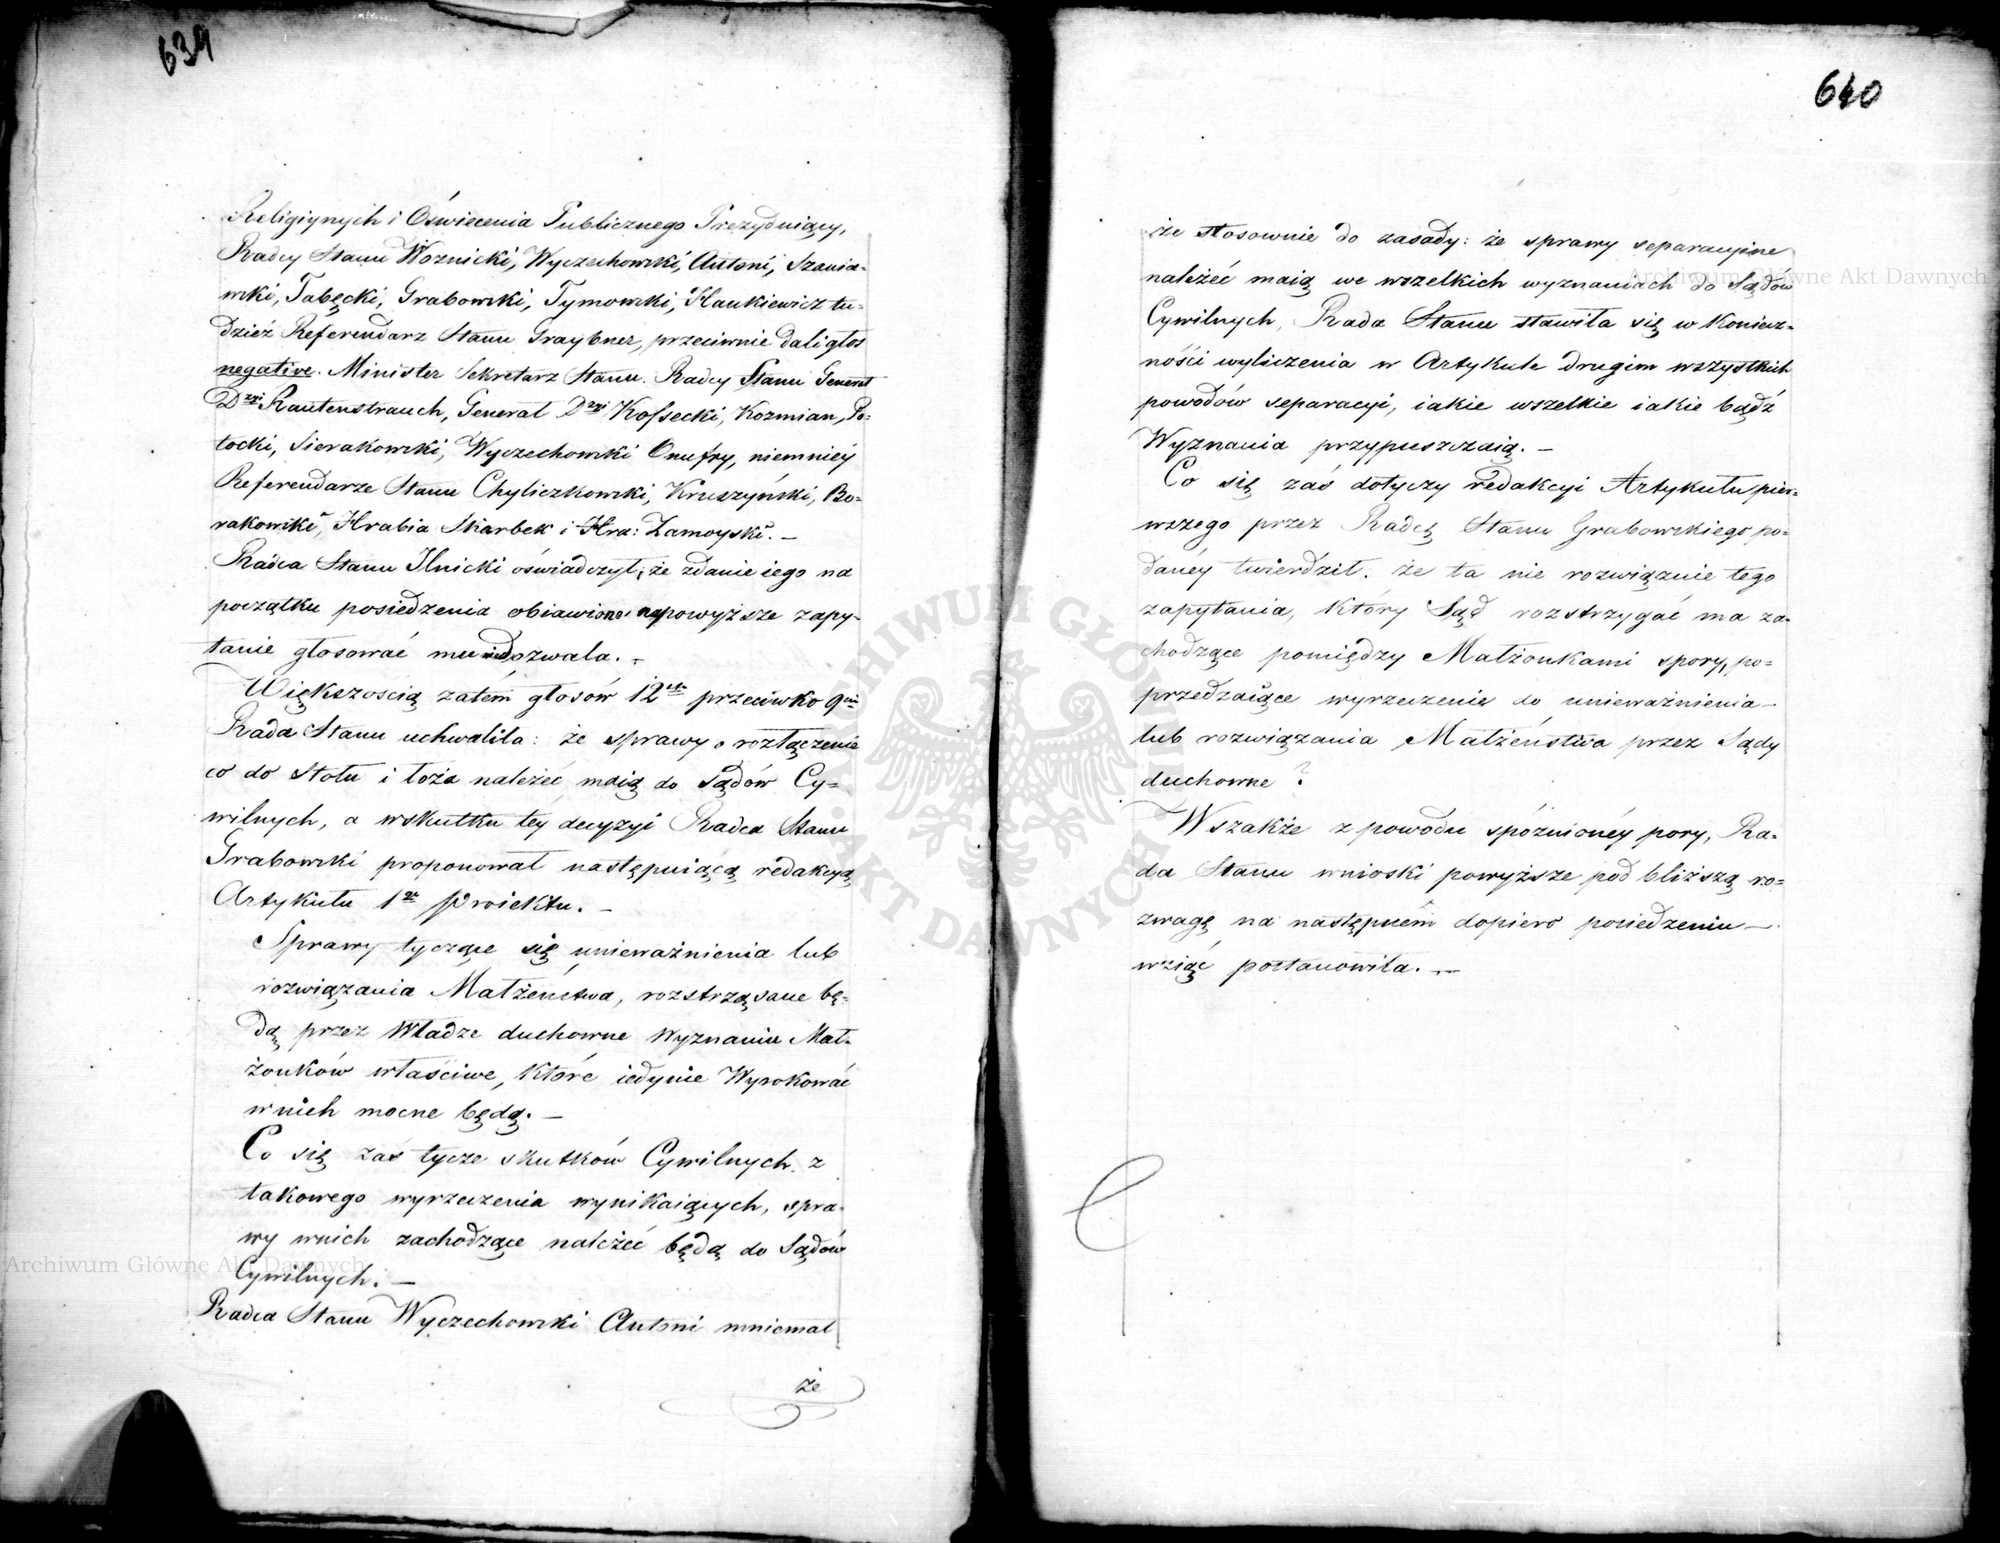 639
Religiynych i Oświecenia Publicznego Prezyduiący,
Radcy Stanu Woznicki, Wyczechowski, Antoni, Szania-
wski, Tabęcki, Grabowski, Tymowski, Hankiewicz tu-
dzież Referendarz Stanu Graybner, przeciwnie dali głos
negative. Minister Sekretarz Stanu. Radcy Stanu Generał
Dyzi Rautenstrauch, Generał Dyzi Kossecki, Kozmian, Po-
tocki, Sierakowski, Wyczechowski Onufry, niemniéy
Referendarze Stanu Chyliczkowski, Kruszyński, Bo-
rakowski, Hrabia Skarbek i Hra: Zamoyski. —
Radca Stanu Ilnicki oświadczył, że zdanie iego na
początku posiedzenia obiawione na powyższe zapy-
tanie głosować mu niedozwala. —
Większością zatém głosów 12stu przeciwko 9ciu
Rada Stanu uchwaliła: że sprawy o rozłączenie
co do stołu i łoża należéć maią do Sądów Cy-
wilnych, a wskutku téy decyzyi Radca Stanu
Grabowski proponował następuiącą redakcyą
Artykułu 1go Proiektu. —
Sprawy tyczące się unieważnienia lub
rozwiązania Małżeństwa, rozstrząsane bę-
dą przez Władze duchowne Wyznaniu Mał-
żonków właściwe, które iedynie Wyrokować
w nich mocne będą. —
Co się zaś tycze skutków Cywilnych z
takowego wyrzeczenia wynikaiących, spra-
wy w nich zachodzące należéć będą do Sądów
Cywilnych. —
Radca Stanu Wyczechowski Antoni mniemał
że
640
że stosownie do zasady: że sprawy separacyine
należéć maią we wszelkich wyznaniach do Sądów
Cywilnych, Rada Stanu stawiła się w koniecz-
ności wyliczenia w Artykule drugim wszystkich
powodów separacyi, iakie wszelkie iakie bądź
Wyznania przypuszczaią. —
Co się zaś dotyczy redakcyi Artykułu pier-
wszego przez Radcę Stanu Grabowskiego po-
danéy twierdził, że ta nie rozwiązuie tego
zapytania, który Sąd rozstrzygać ma za-
chodzące pomiędzy Małżonkami spory, po-
przedzaiące wyrzeczenie do unieważnienia
lub rozwiązania Małżeństwa przez Sądy
duchowne?
Wszakże z powodu spóźnionéy pory, Ra-
da Stanu wnioski powyższe pod bliższą ro-
zwagę na następném dopiero posiedzeniu —
wziąć postanowiła. —
Archiwum Główne Akt Dawnych
Archiwum Główne Akt Dawnych
ARCHIWUM GŁÓWNE AKT DAWNYCH